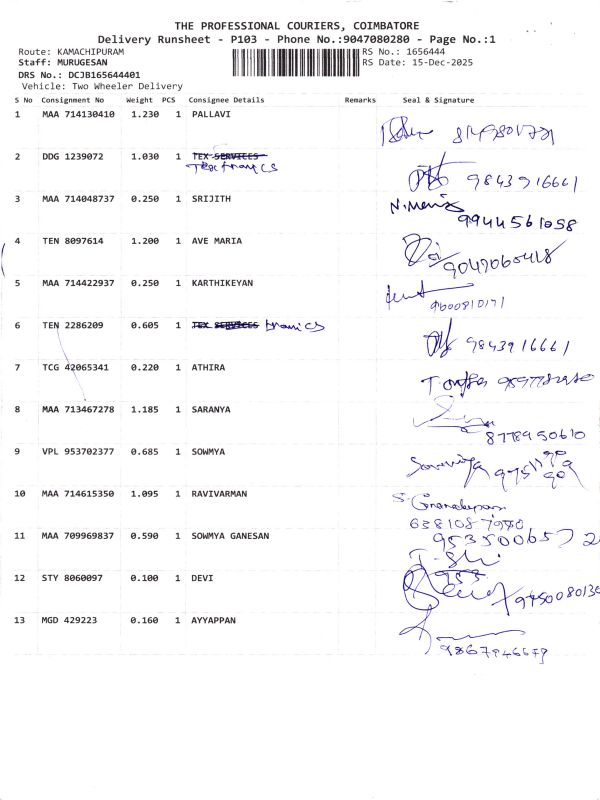 THE PROFESSIONAL COURIERS, COIMBATORE
Delivery Runsheet - P103 - Phone No.:9047080280 - Page No.:1
Route: KAMACHIPURAM RS No.: 1656444
Staff: MURUGESAN RS Date: 15-Dec-2025
DRS No.: DCJB165644401
Vehicle: Two Wheeler Delivery
S No Consignment No Weight PCS Consignee Details Remarks Seal & Signature
1 MAA 714130410 1.230 1 PALLAVI
2 DDG 1239072 1.030 1 TEX SERVICES
9843916661
3 MAA 714048737 0.250 1 SRIJITH
9944561058
4 TEN 8097614 1.200 1 AVE MARIA
9047060418
5 MAA 714422937 0.250 1 KARTHIKEYAN
9600810171
6 TEN 2286209 0.605 1 TEX SERVICES
9843916661
7 TCG 42065341 0.220 1 ATHIRA
8 MAA 713467278 1.185 1 SARANYA
8778950610
9 VPL 953702377 0.685 1 SOWMYA
10 MAA 714615350 1.095 1 RAVIVARMAN
11 MAA 709969837 0.590 1 SOWMYA GANESAN
12 STY 8060097 0.100 1 DEVI
13 MGD 429223 0.160 1 AYYAPPAN